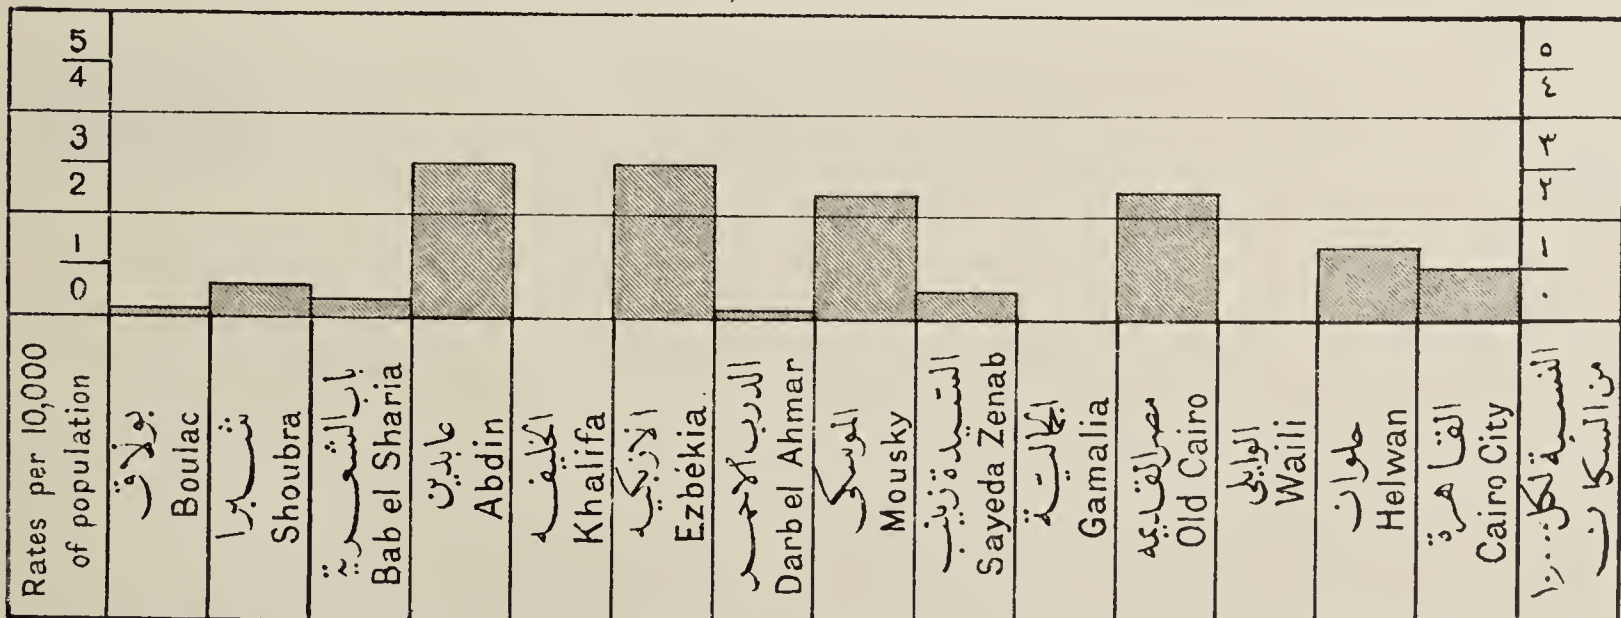 5
4
3
2
1
0
Rates per 10,000
of population
بولاق
Boulac
شبرا
Shoubra
باب الشعرية
Bab el Sharia
عابدين
Abdin
الخليفه
Khalifa
الازبكيه
Ezbékia
الدرب الاحمر
Darb el Ahmar
الموسكى
Mousky
السيدة زينب
Sayeda Zenab
الجماليـة
Gamalia
مصر القديمه
Old Cairo
الوايلى
Waili
حلوان
Helwan
القاهرة
Cairo City
٥
٤
٣
٢
١
٠
النسبة لكل ١٠٠٠٠
من السكان